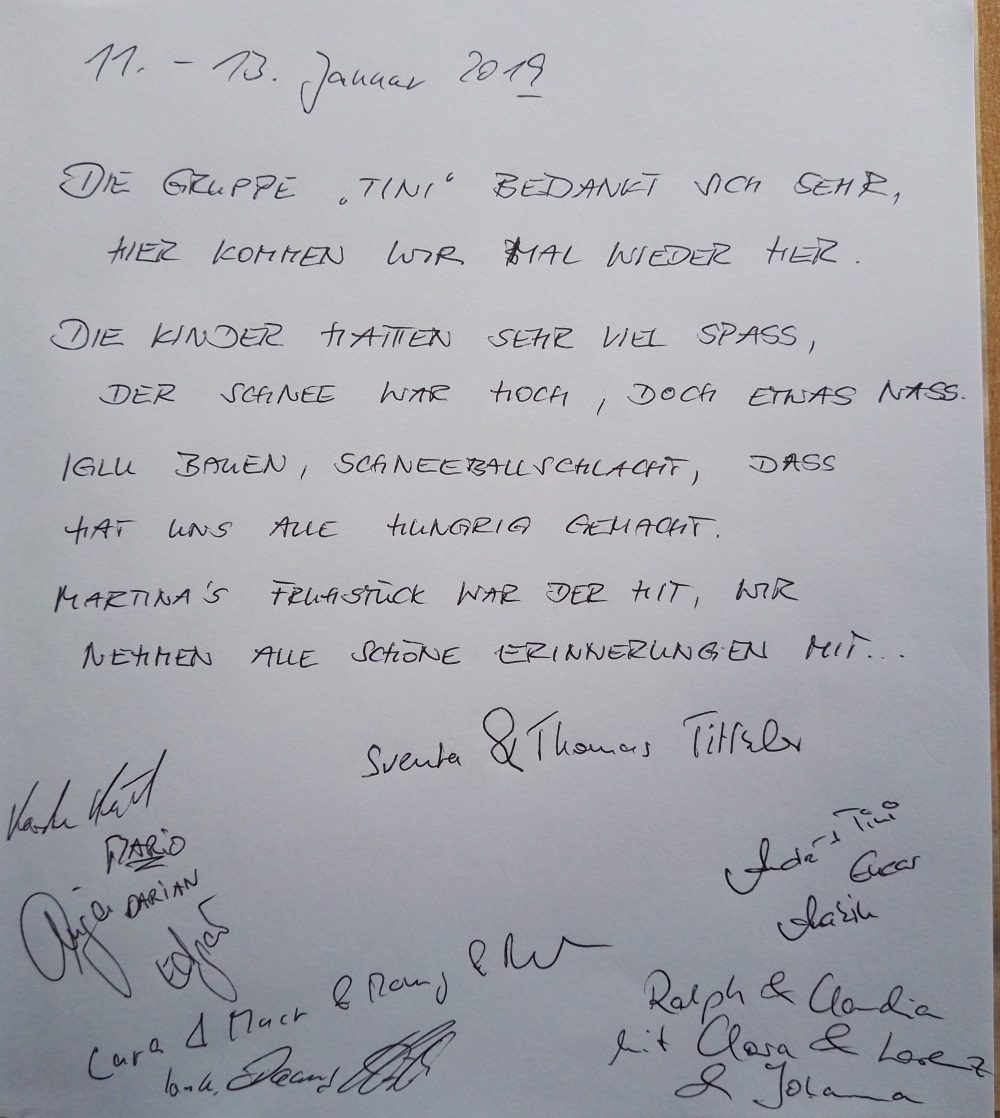 11. - 13. Januar 2019
DIE GRUPPE „TINI“ BEDANKT SICH SEHR,
HIER KOMMEN WIR MAL WIEDER HER.
DIE KINDER HATTEN SEHR VIEL SPASS,
DER SCHNEE WAR HOCH, DOCH ETWAS NASS.
IGLU BAUEN, SCHNEEBALLSCHLACHT, DASS
HAT UNS ALLE HUNGRIG GEMACHT.
MARTINA'S FRUHSTÜCK WAR DER HIT, WIR
NEHMEN ALLE SCHÖNE ERINNERUNGEN MIT...
Svenja & Thomas
MARIO
DARIAN
Tini
Cara & &
Ralph & Claudia
mit Clara & Lorenz
& Johanna